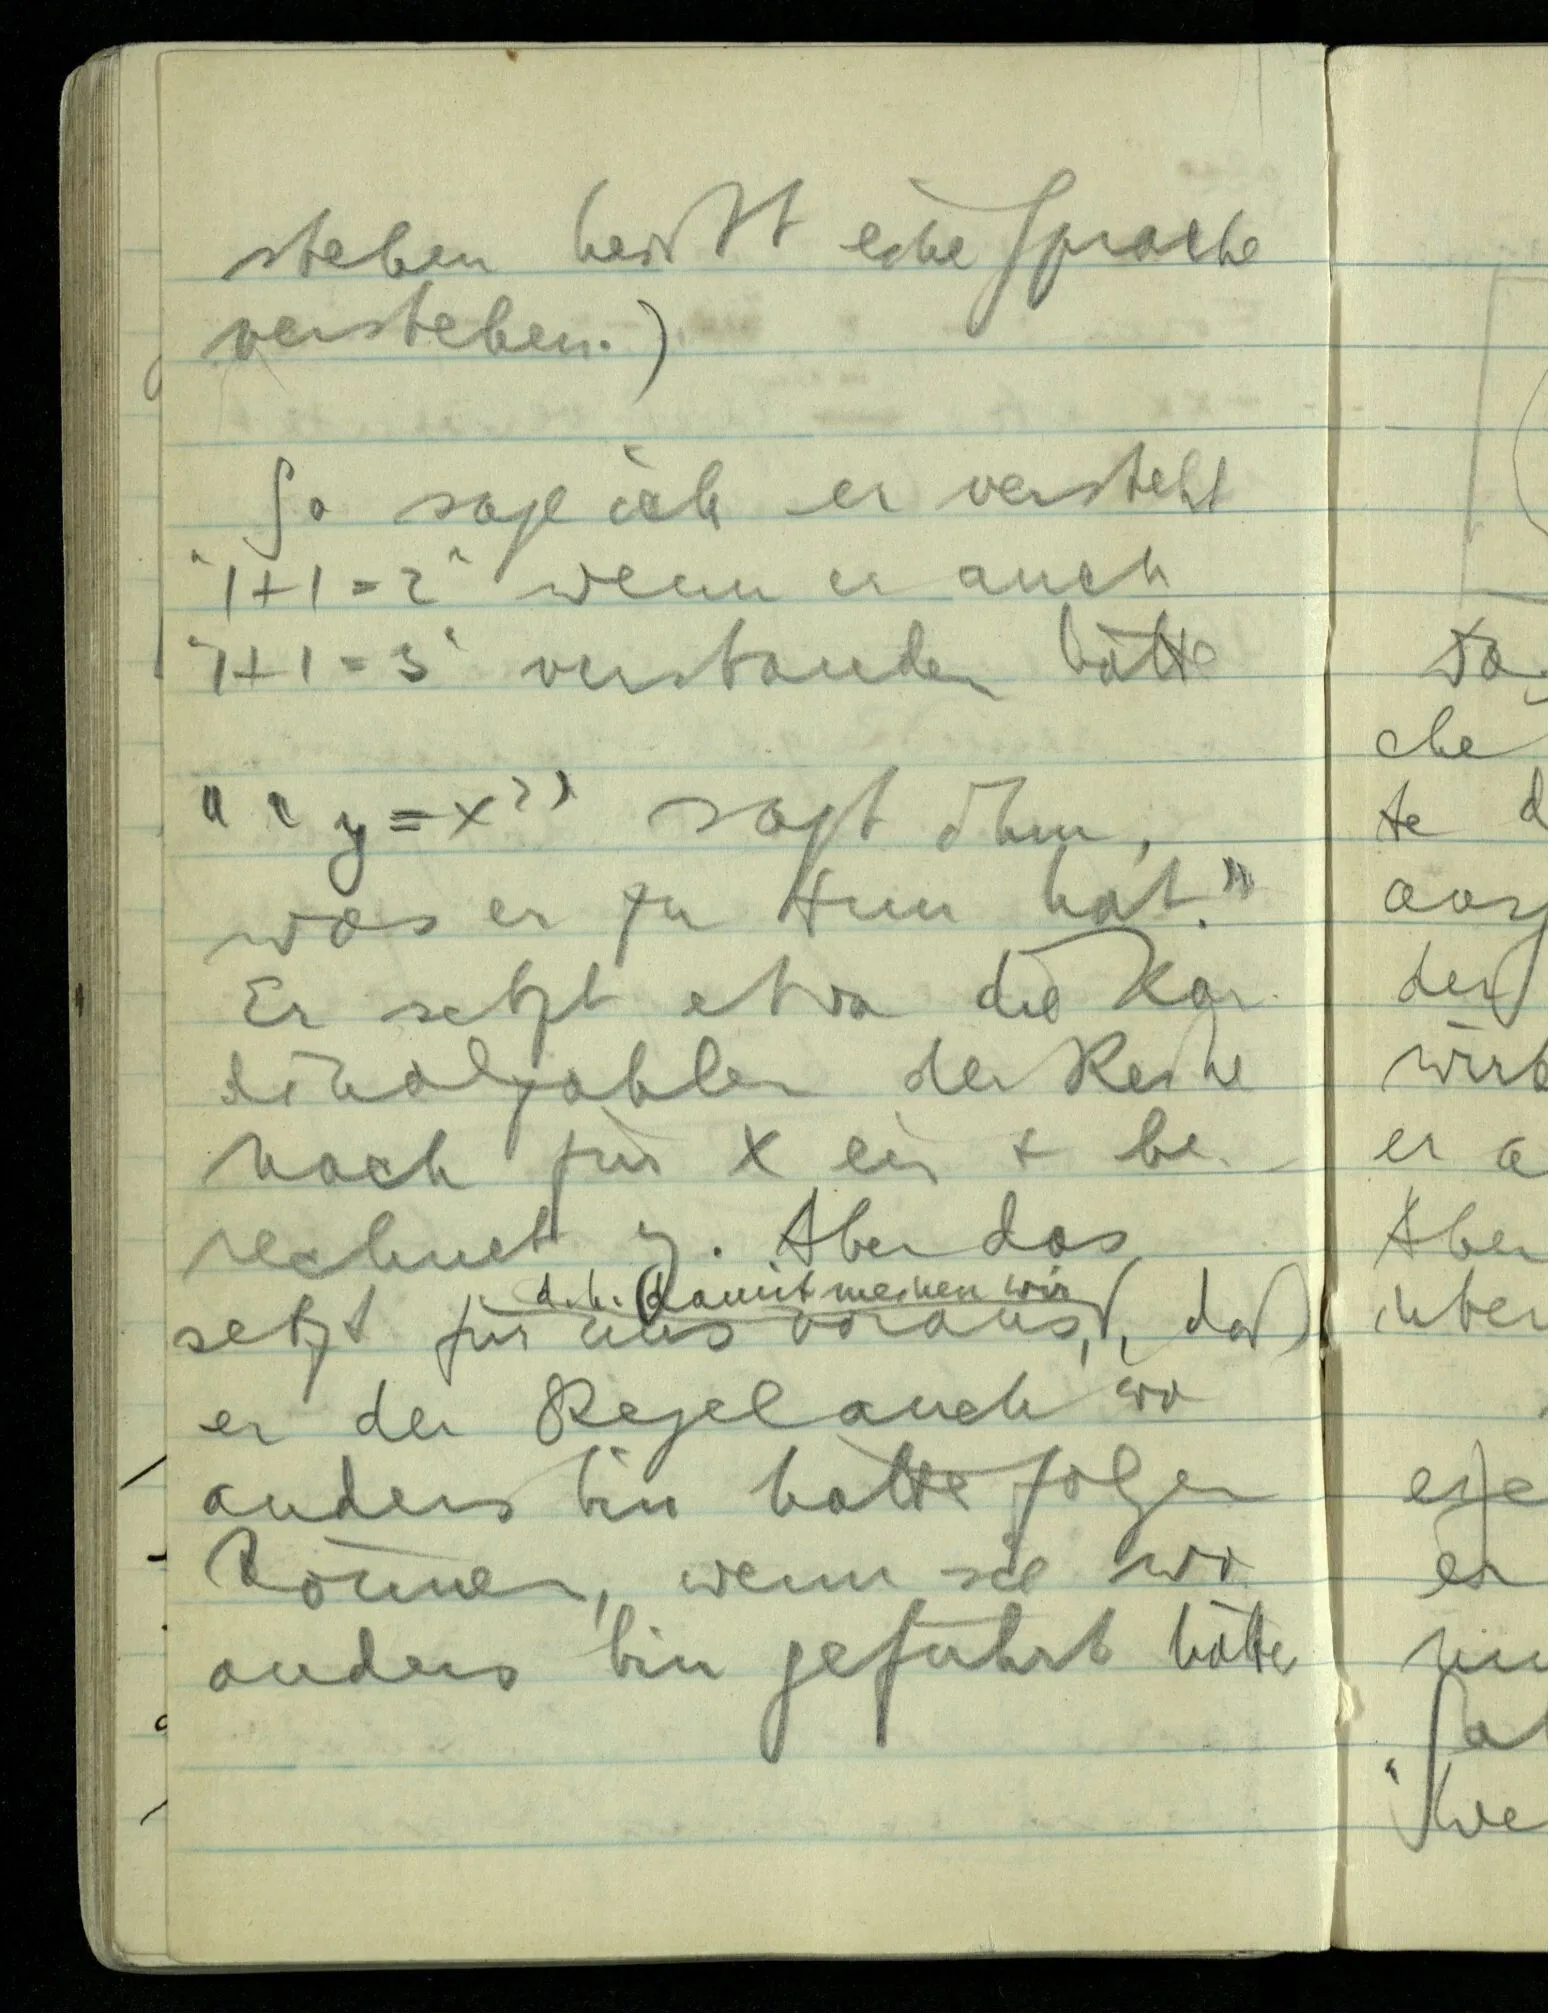 stehen heißt eine Sprache
verstehen.)
So sage ich er versteht
"1+1=2" wenn er auch
"1+1=3" verstanden hätte
" ' y=x²' sagt ihm,
was er zu tun hat."
Er setzt etwa die Kar-
dinalzahlen der Reihe
nach für x ein + be-
rechnet y. Aber das
d.h. (damit meinen wir
setzt für uns voraus,), daß
er der Regel auch wo
anders hin hätte folgen
können, wenn sie wo
anders hin geführt hätte
che
te d
der
wirk
er a
Aber
er